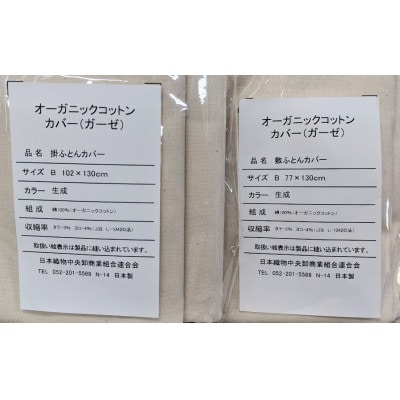 オーガニックコットン
カバー(ガーゼ)
品 名 掛ふとんカバー
サイズ B 102×130cm
カラー 生成
組 成 綿100%(オーガニックコットン)
収縮率 タテ-5% ヨコ-4%(JIS L-1042D法)
取扱い絵表示は製品に縫い込まれています。
日本織物中央卸商業組合連合会
TEL 052-201-5568 N-14 日本製
オーガニックコットン
カバー(ガーゼ)
品 名 敷ふとんカバー
サイズ B 77×130cm
カラー 生成
組 成 綿100%(オーガニックコットン)
収縮率 タテ-5% ヨコ-4%(JIS L-1042D法)
取扱い絵表示は製品に縫い込まれています。
日本織物中央卸商業組合連合会
TEL 052-201-5568 N-14 日本製